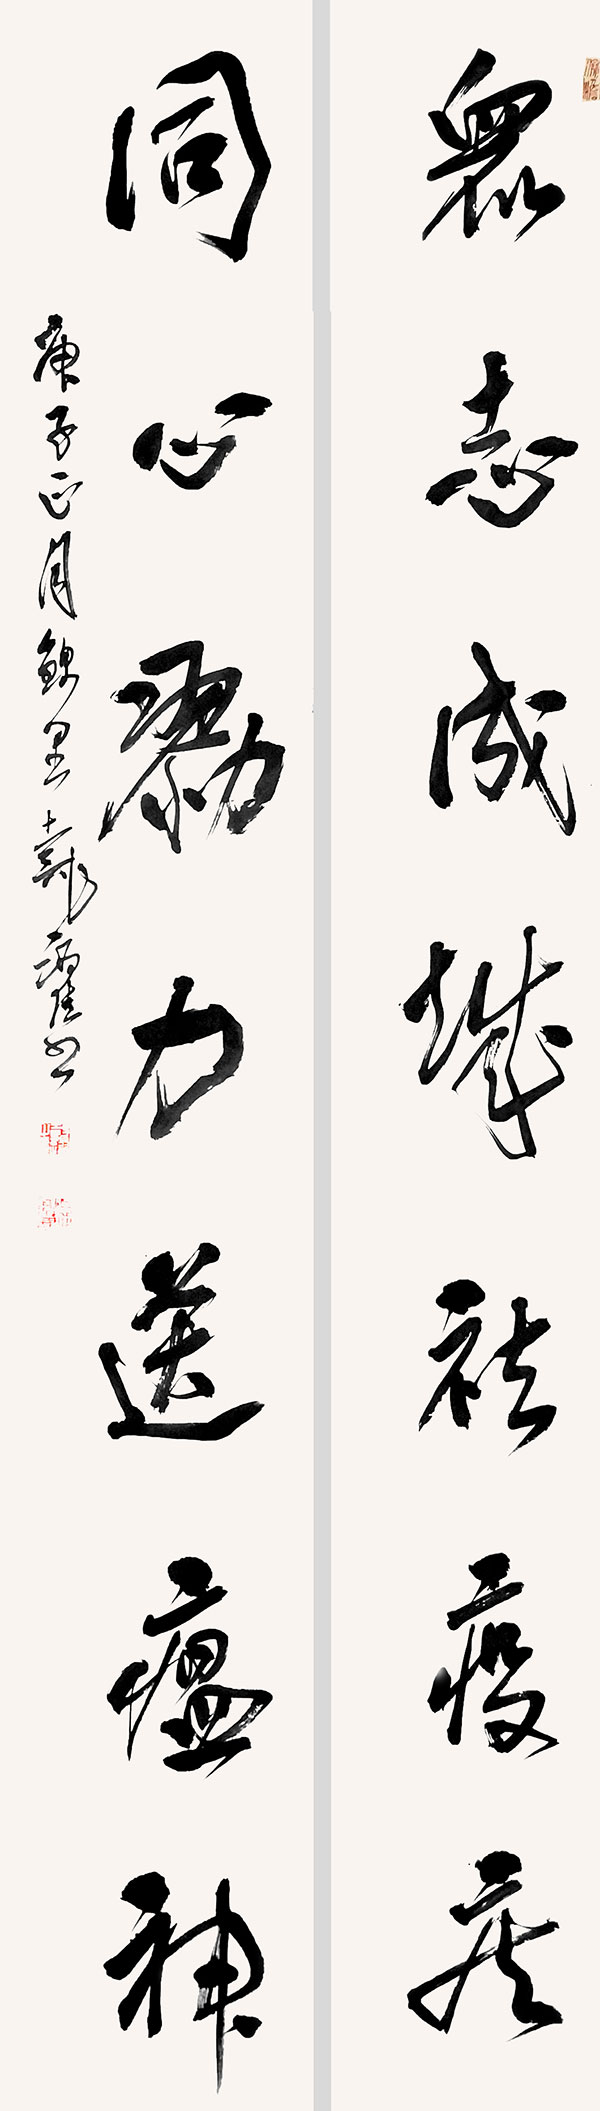 眾志成城祛疫疾
同心勠力送瘟神
庚子正月